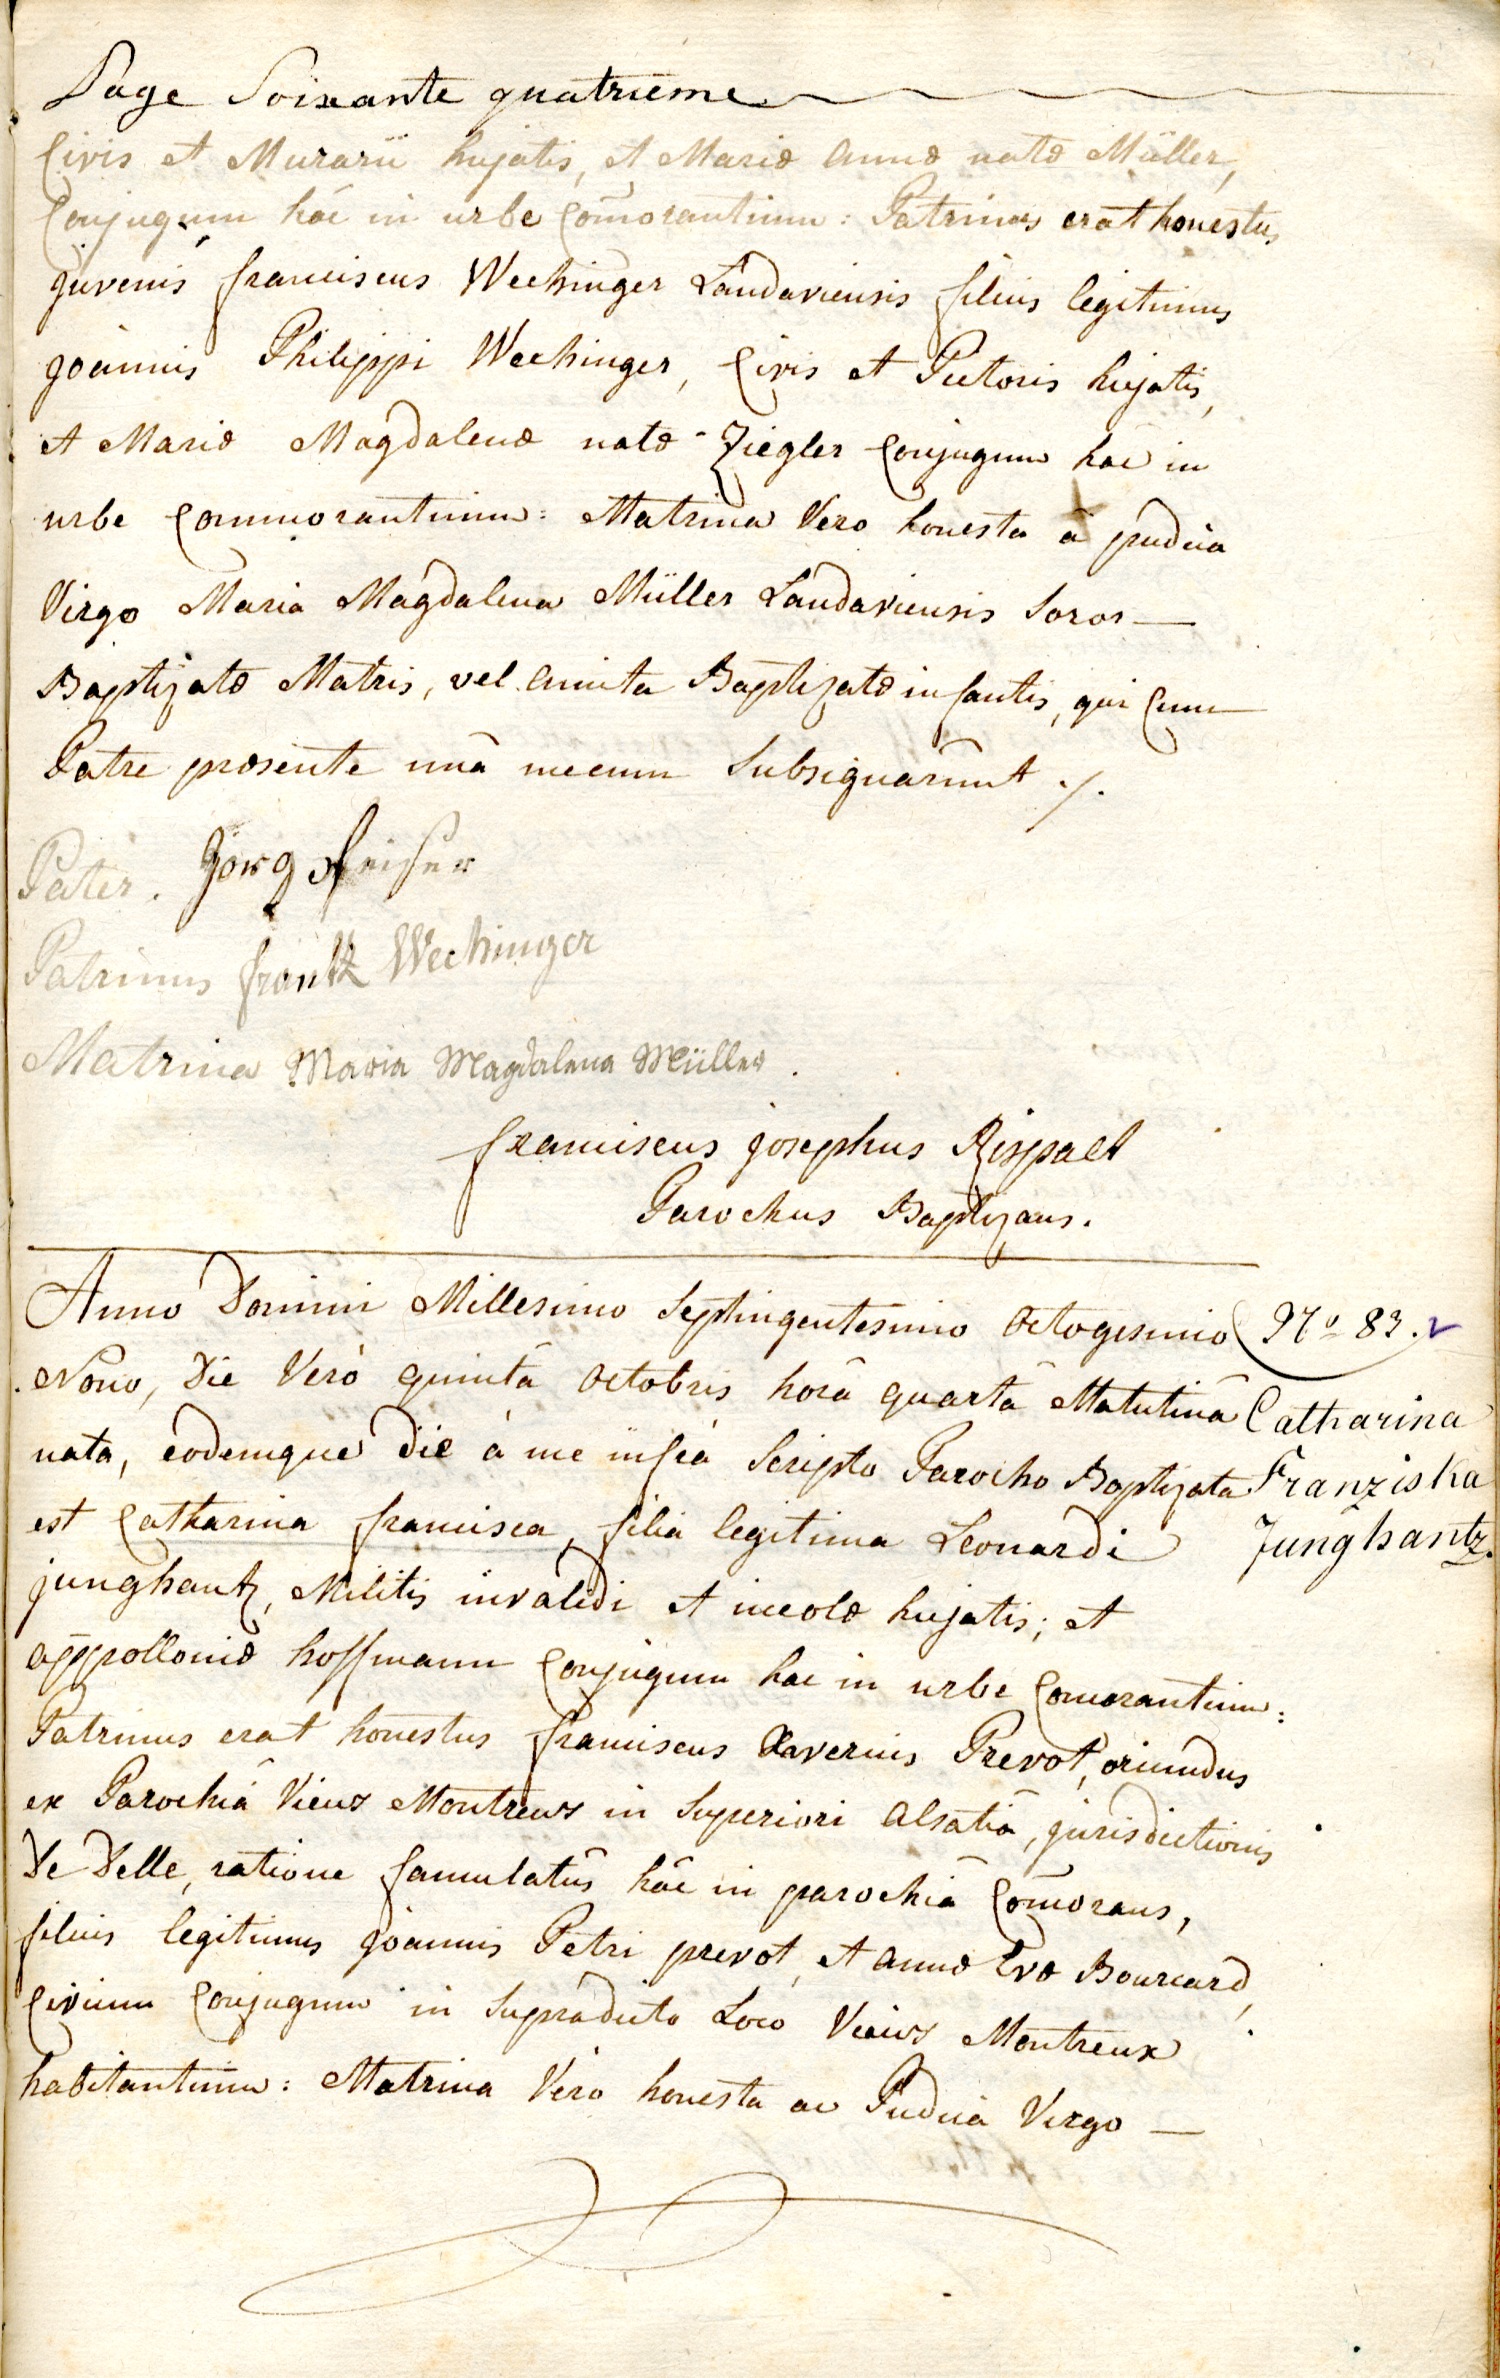 Page Soixante quatrieme
Civis et Murarii hujatis, et Mariæ Annæ natæ Müller,
Conjugum hâc in urbe Com̃orantium: Patrinus erat honestus
juvenis franciscus Wechinger Landaviensis filius legitimus
joannis Philippi Wechinger, Civis et Pictoris hujatis,
et Mariæ Magdalenæ natæ Ziegler Conjugum hac in
urbe Commorantium: Matrina Vero honesta ac pudica
Virgo Maria Magdalena Müller Landaviensis Soror —
Baptizatæ Matris, vel amita Baptizatæ infantis, qui Cum
Patre præsente unâ mecum Subsignarunt ./.
Pater. Jorg Pfeifer
Patrinus frantz Wechinger
Matrina Maria Magdalena Müller.
franciscus josephus Rispalt
Parochus Baptizans.
Anno Domini Millesimo Septingentesimo Octogesimo
Nono, Die Verò quintâ Octobris horâ quartâ Matutinâ
nata, eodemque die à me infrà Scripto Parocho Baptizata
est Catharina francisca, filia legitima Leonardi
junghantz, Militis invalidi et incolæ hujatis; et
appolloniæ hoffmann Conjugum hac in urbe Comorantium:
Patrinus erat honestus franciscus Xaverius Prevot, oriundus
ex Parochiâ Vieux Montreux in Superiori Alsatiâ, jurisdictionis
De Delle, ratione famulatûs hâc in parochiâ Com̃orans,
filius legitimus joannis Petri prevot, et annæ Evæ Bourcard,
Civium Conjugum in Supradicto Loco Vieux Montreux
habitantium: Matrina Vero honesta ac Pudica Virgo —
Nº 83.
Catharina
Franziska
Junghantz.